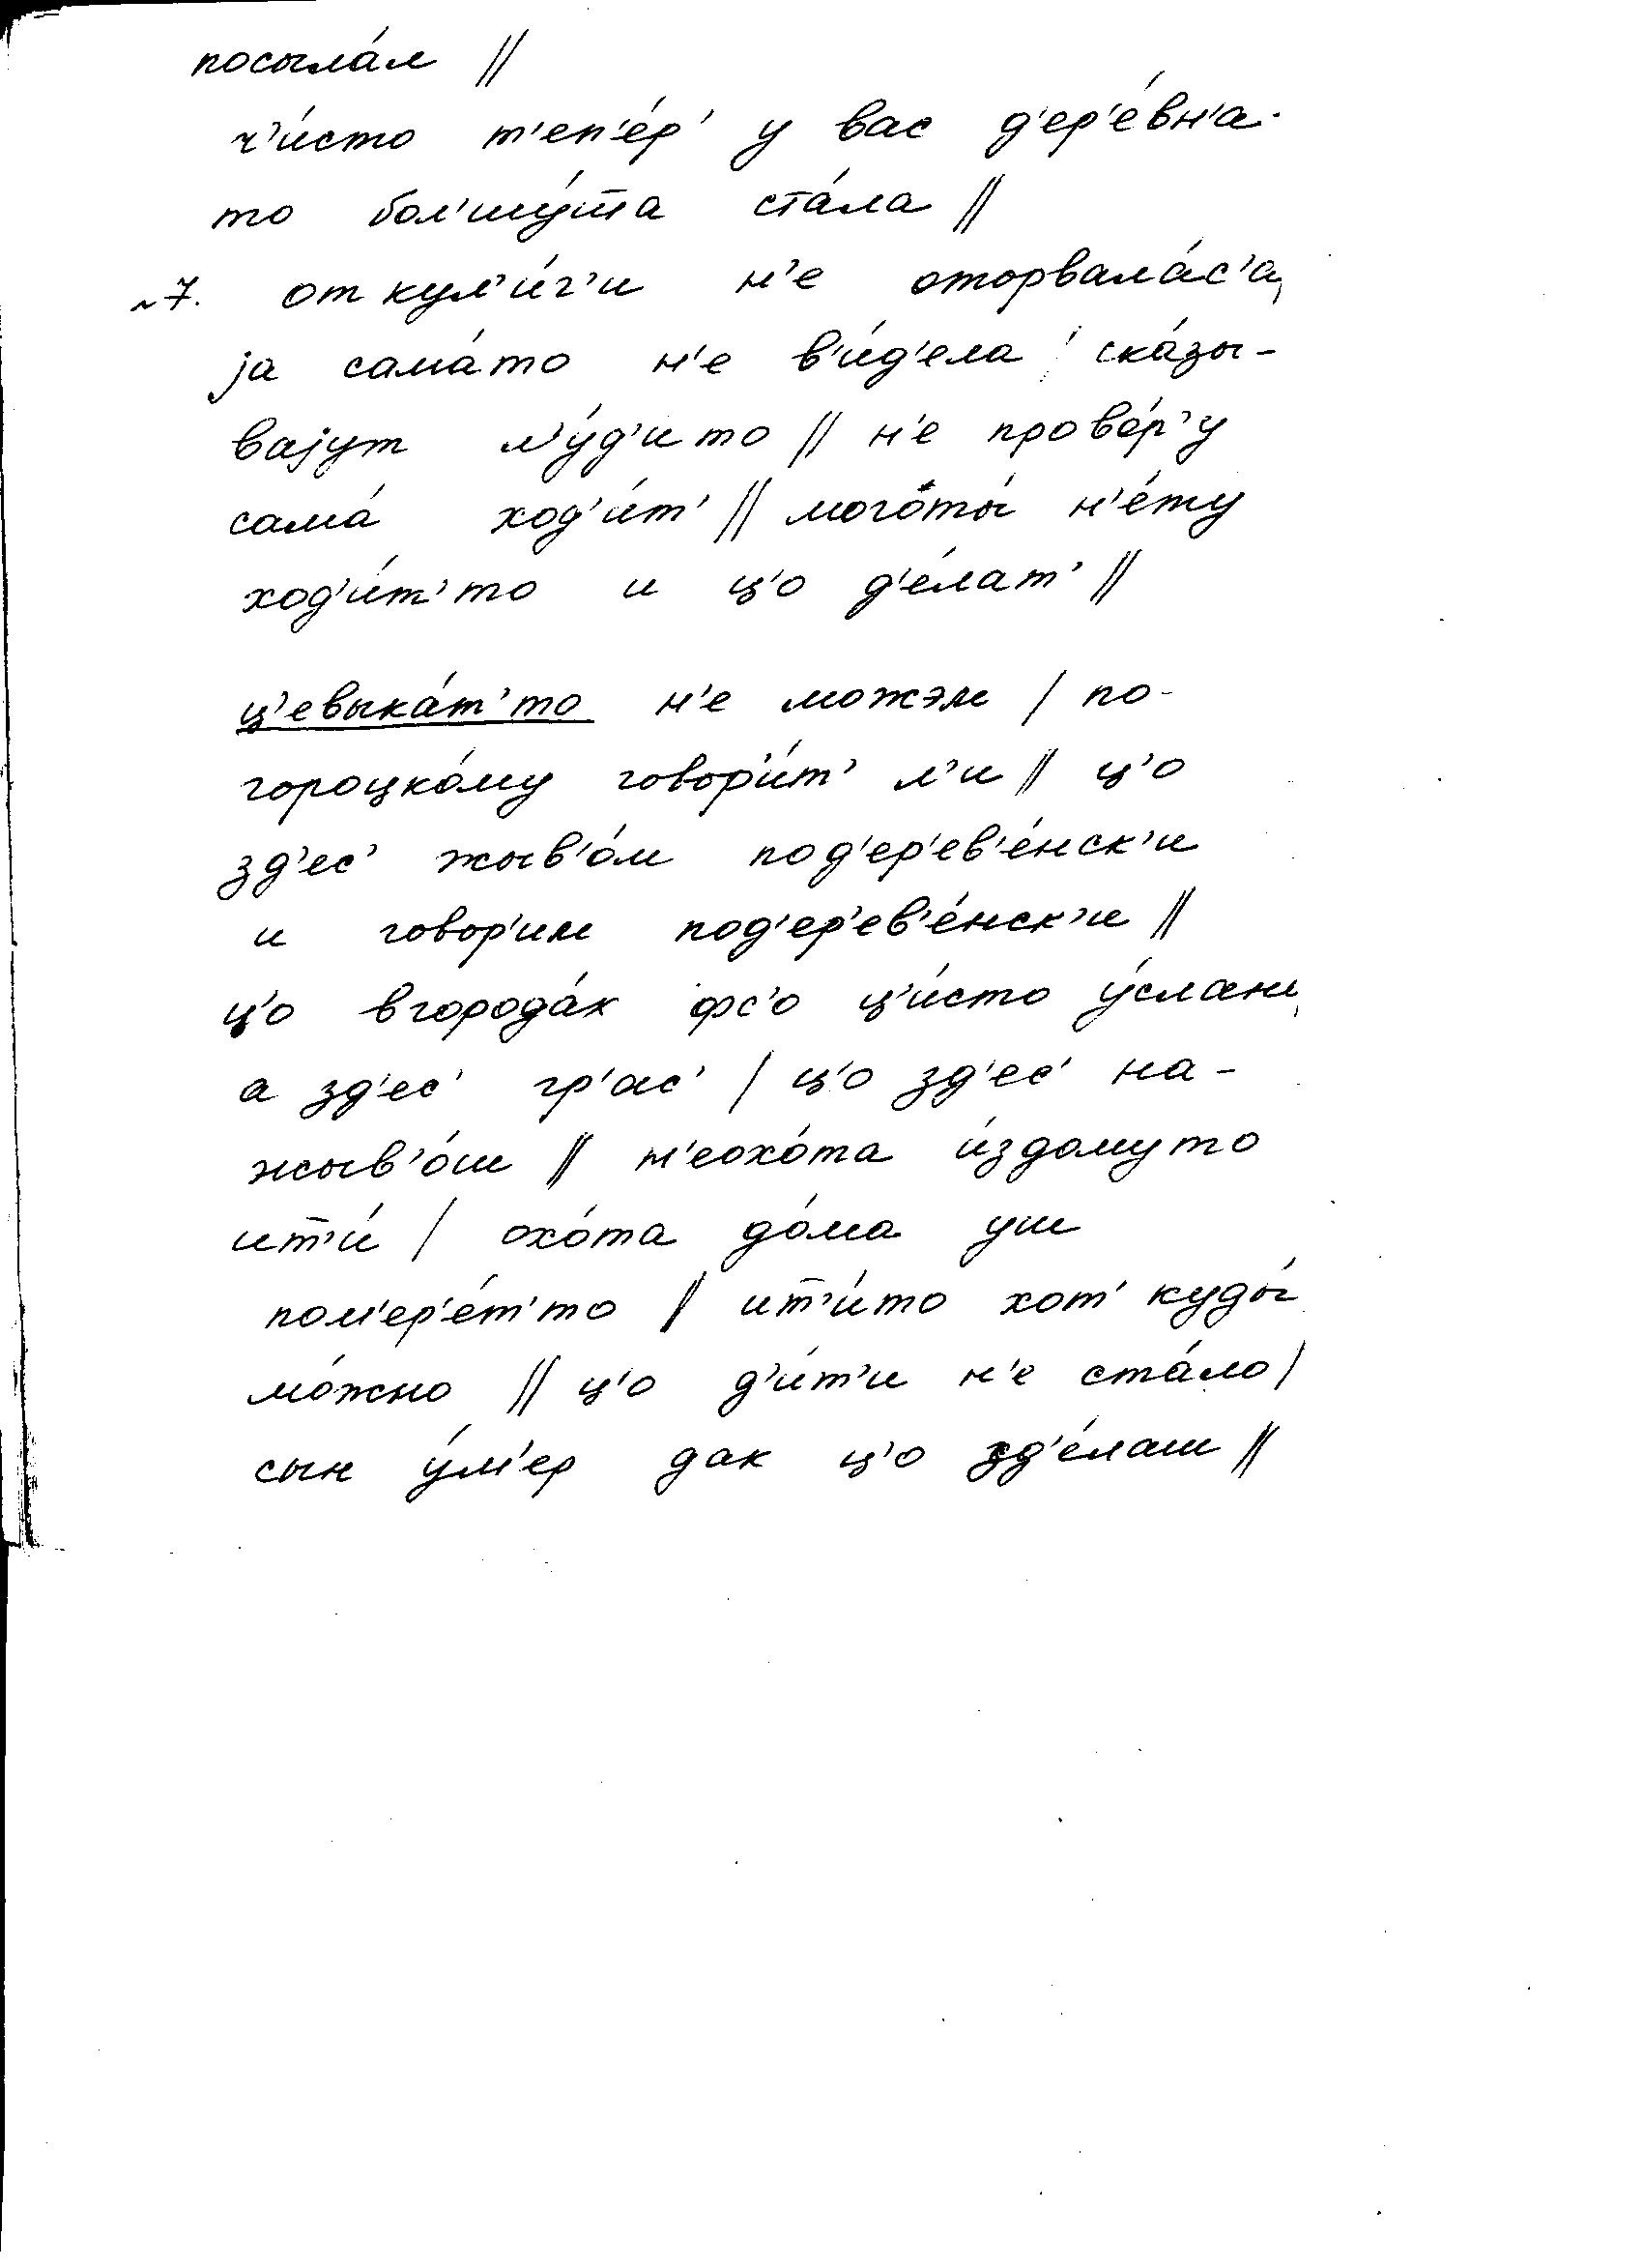 посыла́л ||
ч'и́сто т'еп'е́р' у вас д'ер'е́вн'а-
то бол'шу́т̅а ста́ла ||
~7. от кул'и́г'и н'е оторвала́с'а,
ја сама́то н'е в'и́д'ела ¦ ска́зы-
вајут л'у́д'ито || н'е прове́р'у
сама́ ход'и́т' || моготы́ н'е́ту
ход'и́т'то и ц'о д'е́лат' ||
ц'евыка́т'то н'е можэм / по-
гороцко́му говор'и́т' л'и || ц'о
зд'ес' жыв'о́м под'ер'ев'е́нск'и
и говор'им под'ер'ев'е́нск'и ||
ц'о вгорода́х фс'о ц'и́сто у́слано,
а зд'ес' гр'ас' / ц'о зд'ес' на-
жыв'о́ш || н'еохо́та и́здомуто
ит̅'и́ / охо́та до́ма уш
пом'ер'е́т'то || ит̅'и́то хот' куды́
мо́жно || ц'о д'и́т'и н'е ста́ло /
сын у́м'ер дак ц'о зд'е́лаш ||